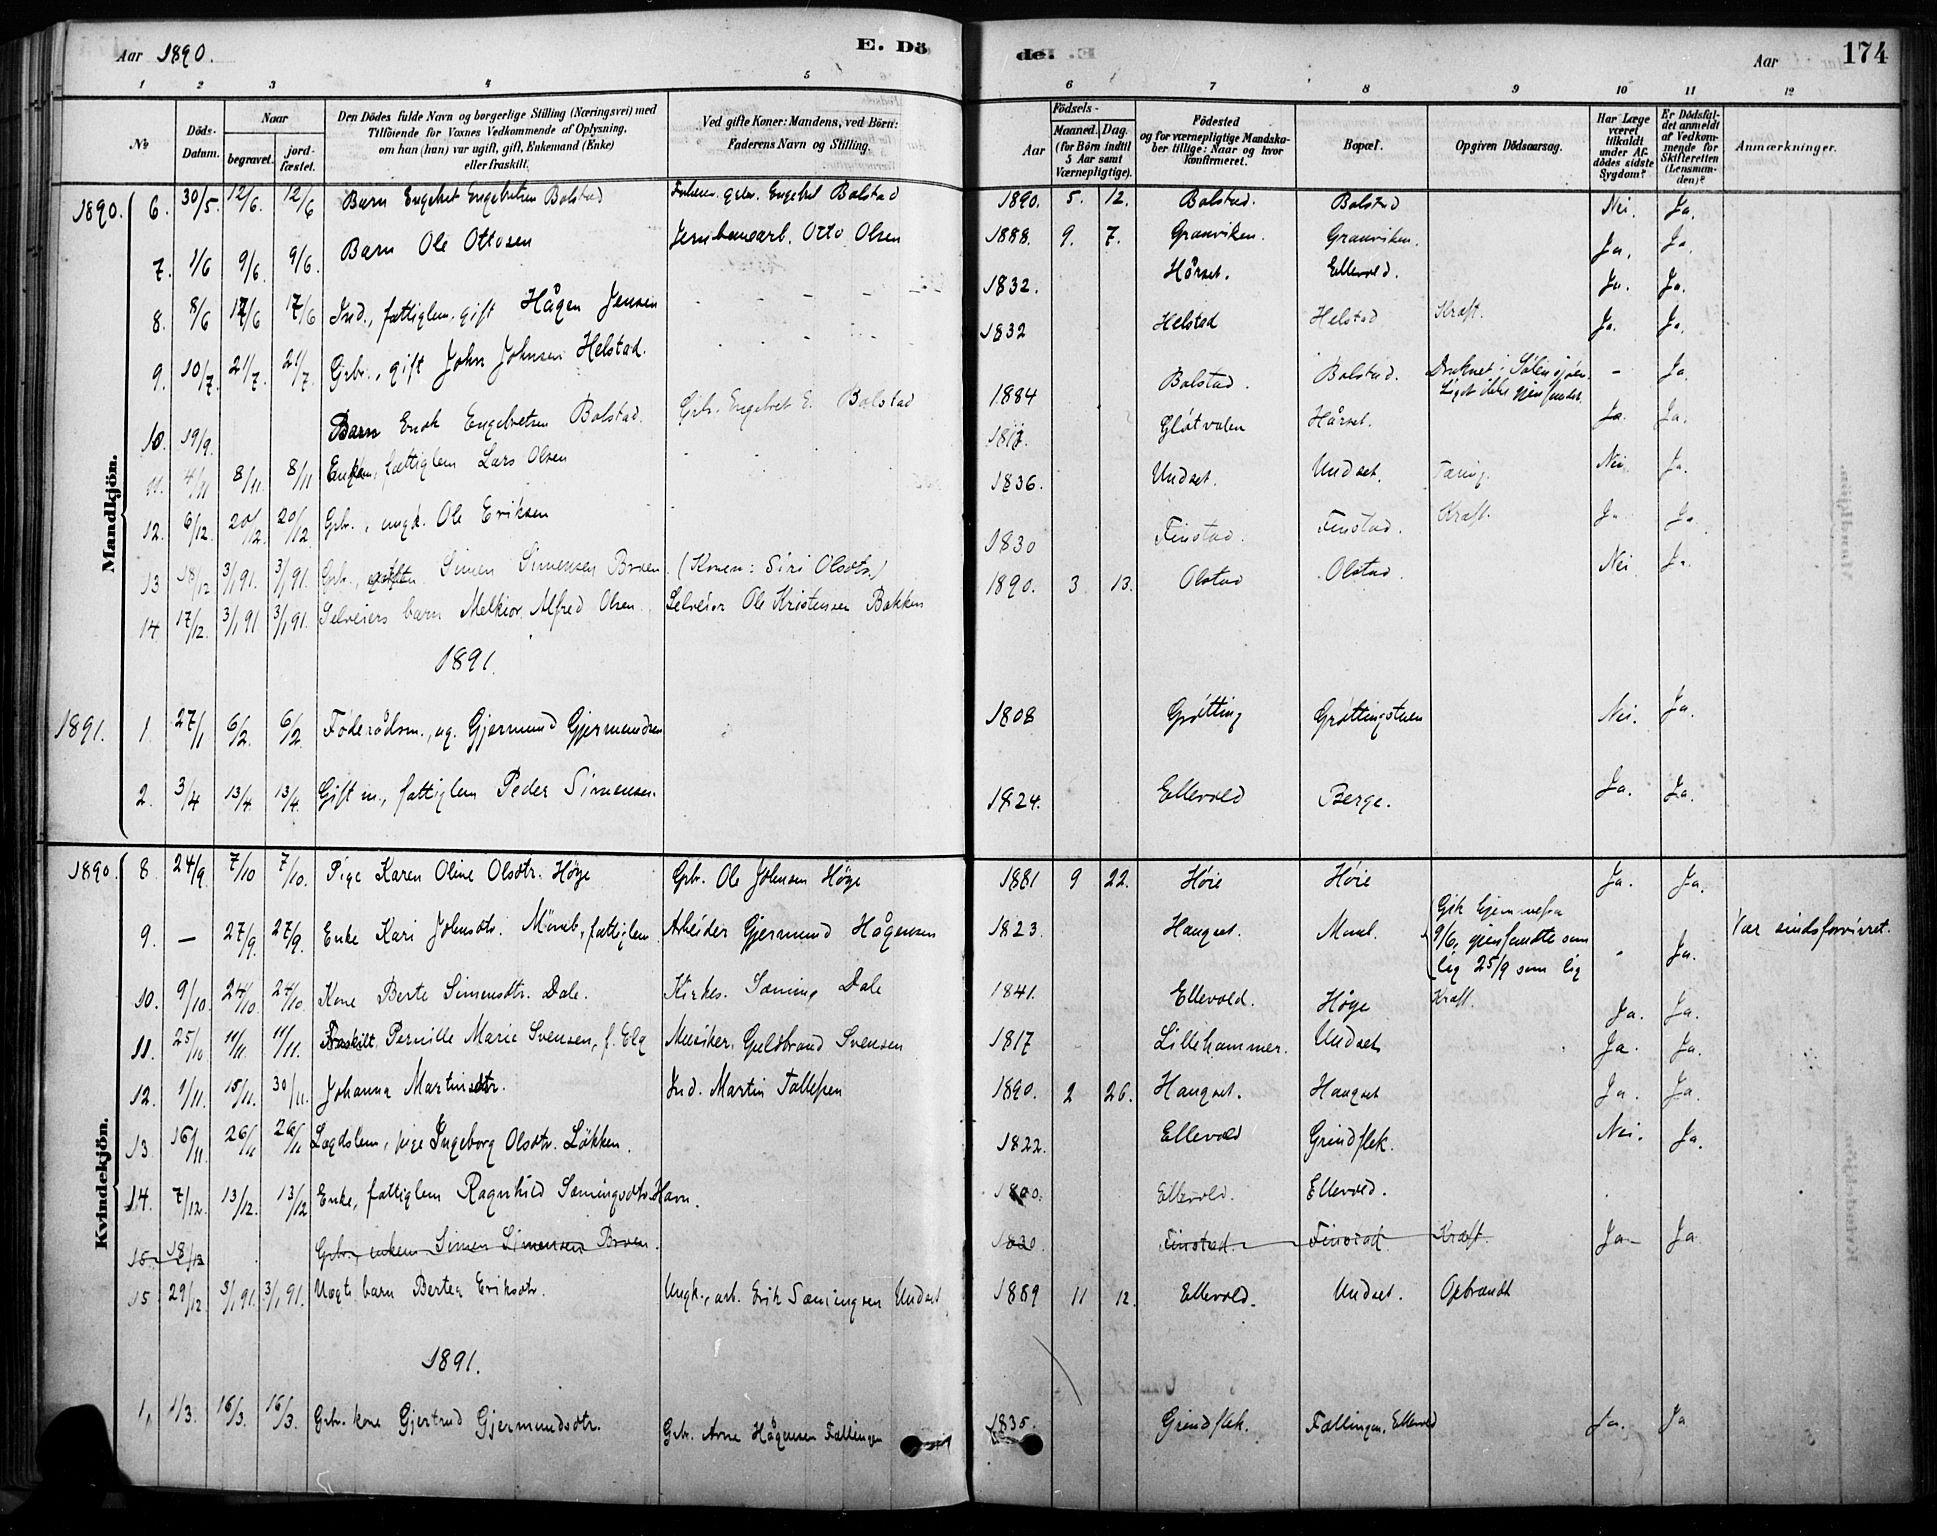 Aar 1890. E. Dö de. Aar 174
1 2 3 4 5 6 7 8 9 10 11 12
No
Döds-Datum.
Naar
begravet.
jordfæstet.
Den Dödes fulde Navn og borgerlige Stilling (Næringsvei) med
Tilföiende for Voxnes Vedkommende af Oplysning,
om han (hun) var ugift, gift, Enkemand (Enke)
eller fraskilt.
Ved gifte Koner: Mandens, ved Börn:
Faderens Navn og Stilling.
Födsels-
Aar
Maaned. Dag.
(for Börn indtil
5 Aar samt
Værnepligtige).
Födested
og for værnepligtige Mandska-
ber tillige: Naar og hvor
konfirmeret.
Bopæl.
Opgiven Dödsaarsag.
Har Læge
været
tilkaldt
under Af-
dödes sidste
Sygdom?
Er Dödsfal-
det anmeldt
af Vedkom-
mende for
Skifteretten
(Lensman-
den)?
Anmærkninger.
Mandkjön.
1890. 6. 30/5. 12/6. 12/6 Barn Engebret Engebretsen Bolstad Engebret Bolstad 1890. 5. 12. Bolstad. Bolstad Nei. Ja.
7. 1/6 9/6. 9/6. Barn Ole Ottosen Jernbanearb. Otto Olsen 1888. 9. 7. Granviken. Granviken. Ja. Ja.
8. 8/6 17/6 17/6 Ind., fattiglem, gift Hågen Jensen - - - - 1832. Hårset. Ellevold. Ja. Ja.
9. 10/7. 21/7. 21/7. Grbr., gift John Johnsen Helstad. - - - - 1832 Helstad Helstad Kræft. Ja. Ja.
10. 19/9. Barn Enok Engebretsen Bolstad. Grb. Engebret E. Bolstad 1884 Bolstad. Bolstad. Druknet i Sölensjöen. Liget ikke gjenfundet. - Ja.
11. 4/11 8/11. 8/11 Enkem, fattiglem Lars Olsen Glötvolen Hårset. Ja. Ja.
12. 6/12. 20/12. 20/12 Grb., ungk. Ole Eriksen 1836. Undset. Undset. Tæring. Nei. Ja.
13 18/12 3/1 91. 3/1 91. Grb., Simen Simensen Broen. (Konen: Siri Olsdtr.) 1830 Finstad. Finstad. Kræft. Ja Ja.
14 17/12. 3/1 91 3/1 91. Selveiers barn Melkior Alfred Olsen. Selveier Ole Kristensen Bakken 1890. 3 13. Olstad Olstad. Nei. Ja.
1891.
1891. 1. 27/1 6/2. 6/2. Föderådsm., ug. Gjermund Gjermundsen 1808 Gröttting Gröttingstuen Nei. Ja.
2. 3/4 13/4. 13/4. Gift m., fattiglem Peder Simensen. 1824. Ellevold Berge. Ja. Ja.
Kvindekjön.
1890. 8. 24/9. 7/10 7/10. Pige Karen Oline Olsdtr. Höye Grb. Ole Johnsen Höye 1881 9 22. Höie Höie Ja. Ja.
9. — 27/9. 27/9. Enke Kari Johnsdtr. fattiglem. Arbeider Gjermund Hågensen 1823. Haugset. Gik hjemmefra
9/6, gjenfandtes som
lig 25/9 som lig - Ja. Var sindsforvirret.
10. 9/10. 24/10 24/10. Kone Berte Simensdtr. Dale. Kirkes. Sæming Dale 1841. Ellevold. Höye Kræft. Ja. Ja.
11. 25/10 11/11. 11/11. Fraskilt Pernille Marie Svensen, f. Elg Musiker. Guldbrand Svensen 1817 Lillehammer. Undset Ja. Ja.
12. 1/11. 15/11. 30/11. Johanna Martinsdtr. Ind. Martin Tollefsen 1890. 2 26. Haugset. Haugset Ja. Ja.
13. 16/11. 26/11 26/11 Lægdslem, pige Ingeborg Olsdtr. Lökken. 1822. Ellevold Grindflek. Nei. Ja.
14 7/12. 13/12. 13/12 Enke, fattiglem Ragnhild Sæmingsdtr. Havn. Ellevold. Ellevold.
15. 18/12 Grb., enkem Simen Simensen Broen. 1830. Finstad. Finstad. Kræft. Ja Ja
15 29/12. 3/1 91. 3/1 91. Uægte barn Bertea Eriksdtr. Ungk., arb. Erik Sæmingsen Undset 1889 11 12. Ellevold. Undset. Opbrændt
1891.
1. 1/3. 15/3. 15/3. Grb. kone Gjertrud Gjermundsdtr. Grb. Arne Hågensen Fællingen 1835. Grindflek. Fællingen, Ellevold Ja. Ja